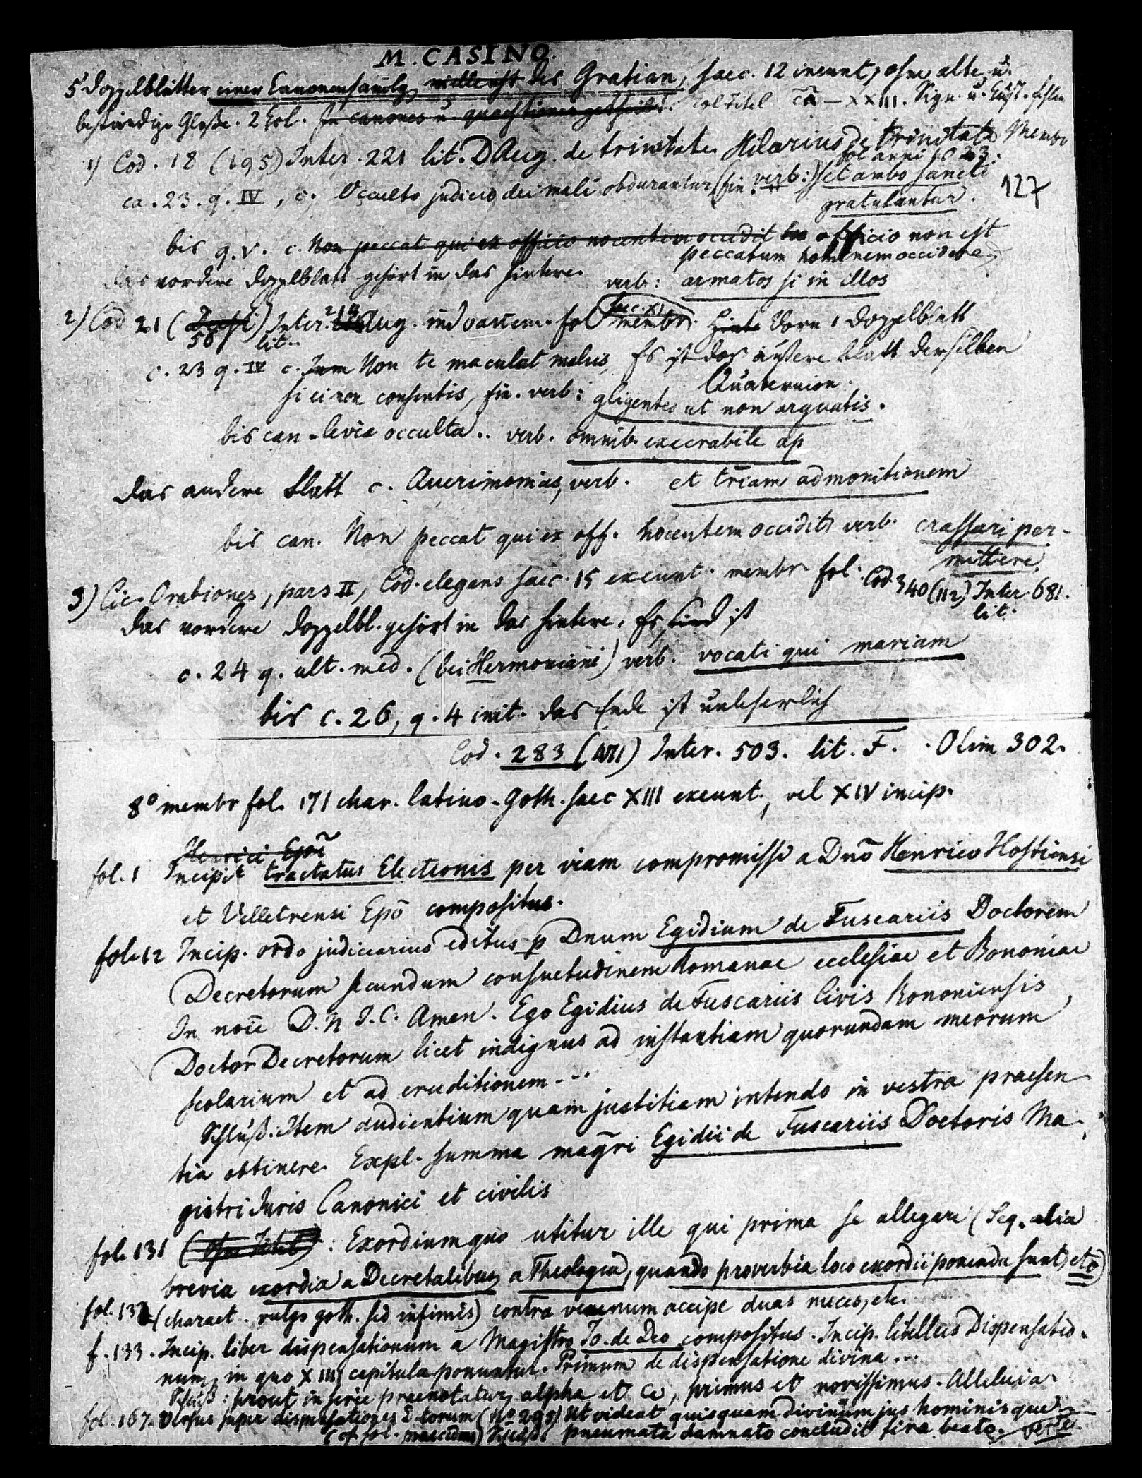 M. CASINO.
5 Doppelblätter einer Canonensamlg des Gratian, saec. 12 ineunt, ohne alte, u.
beständige Glosse. 2 Col. In canones u quaestiones Coltitel ca - XXIII. Sign. u. Cust. fehlen
1) Cod. 18 (195) Inter. 221 lit. D Aug. de trinitate Hilarius de trinitate Membr
fol anni so 23.
ca. 23. q. IV, c. Occulto judicio dei mali obdurantur (fin. verb:) set ambo sancti
127
gratulantur.
bis q. V. c. Non peccat qui ex officio nocentem occidit officio non est
peccatum hominem occidere,
das vordere Doppelblatt gehört in das hintere.
verb: armatos si in illos
2) Cod 21 ( 56) Inter 213 Aug. in vartem. fol membr. Vorn 1 Doppelblatt
saec. XI
lit.
c. 23 q. IV c. Tum Non te maculat malus, Es ist das äußere blatt derselben
Quaternion.
si ei non consentis, fin. verb: gligentes ut non arguatis.
bis can. levia occulta.. verb. omnib execrabile ap
das andere blatt c. Querimonias, verb. et triam admonitionem
bis can. Non peccat qui ex off. nocentem occidit verb. crassari per-
mittere
3) Cic. Orationes, pars II, Cod. elegans saec. 15 exeunt. membr fol. Cod. 340 (112) Inter. 681.
lit.
das vordere Doppelbl. gehört in das hintere. Es sind ist
c. 24 q. alt. med. (bei Hermoniani) verb. vocati qui mariam
bis c. 26, q. 4 init. das Ende ist unleserlich
Cod. 283 (471) Inter. 503. lit. F. . Olim 302.
8° membr fol. 171 char. latino-Goth. saec XIII exeunt, vel XIV incip.
Henrici Epi
fol. 1 Incipit tractatus Electionis per viam compromissi a Dno Henrico Hostiensi
et Velletrensi Epo compositus.
fol. 12 Incip. ordo judiciarius editus p Dnum Egidium de Fuscariis Doctorem
Decretorum secundum consuetudinem Romanae ecclesiae et Bononiae
In noie D. N I. C. Amen. Ego Egidius de Fuscariis Civis Bononiensis,
Doctor Decretorum licet indignus ad instantiam quorundam meorum
scolarium et ad eruditionem ...
Schluß: Item audientium quam justitiam intendo in vestra praesen-
tia obtinere. Expl. summa magri Egidii de Fuscariis Doctoris Ma-
gistri Juris Canonici et civilis
fol. 131 : Exordium quo utitur ille qui prima se allegare (Seq. alia
brevia exordia a Decretalibus, a Theologia, quando proverbia loco exordii ponenda sunt) etc)
fol. 132 (charact. vulgo goth. sed infimus) contra venenum accipe duas nuces, etc.
f. 133. Incip. liber dispensationum a Magistro Jo. de Deo compositus. Incip. libellus Dispensatio-
num, in quo XIII capitula ponuntur. Primum de dispensatione divina ...
Schluß: prout in serie praenotatur, alpha et ω, primus et novissimus. Alleluia.
fol. 167. Versus super dispensationes E-torum (No 293) Ut videat quisquam divinum jus hominisque
Schluß: pneumata damnato concludit fira beato. verte